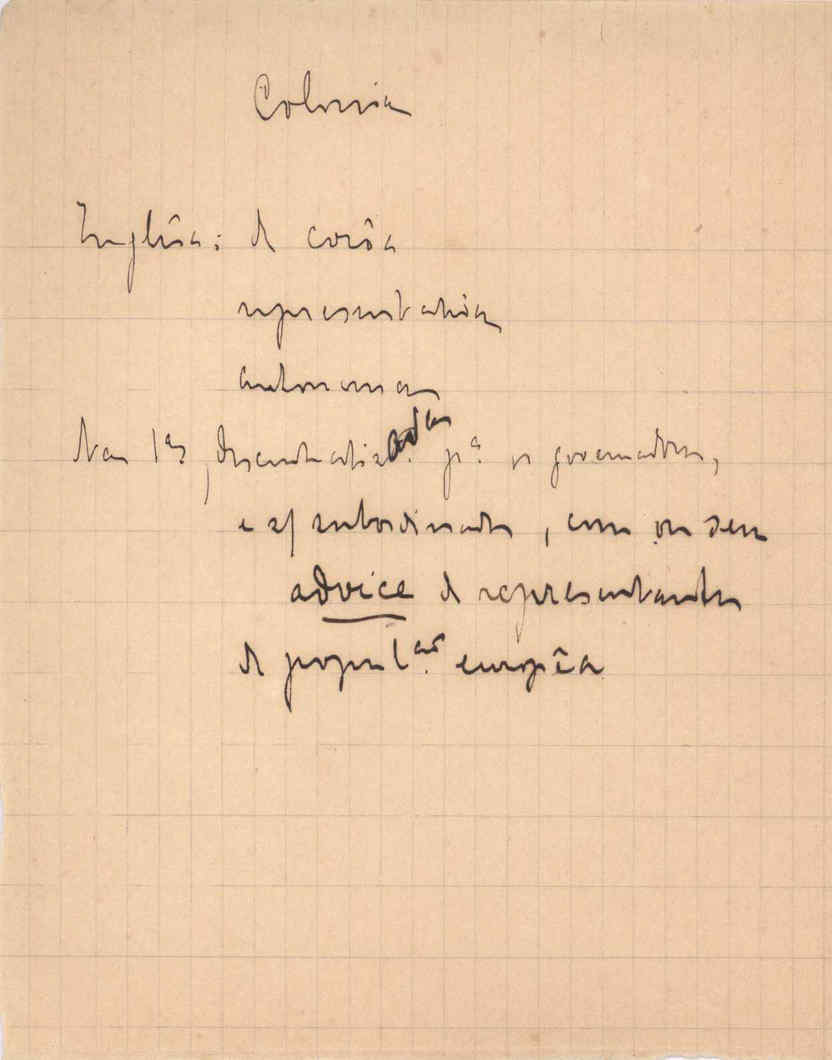 Colonia
Inglêsa: de corôa
representativa
autonoma
Nas 1as, descentralisadas pa os governadores,
e s/ subordinados, com ou sem
advice de representantes
de populas. europêa